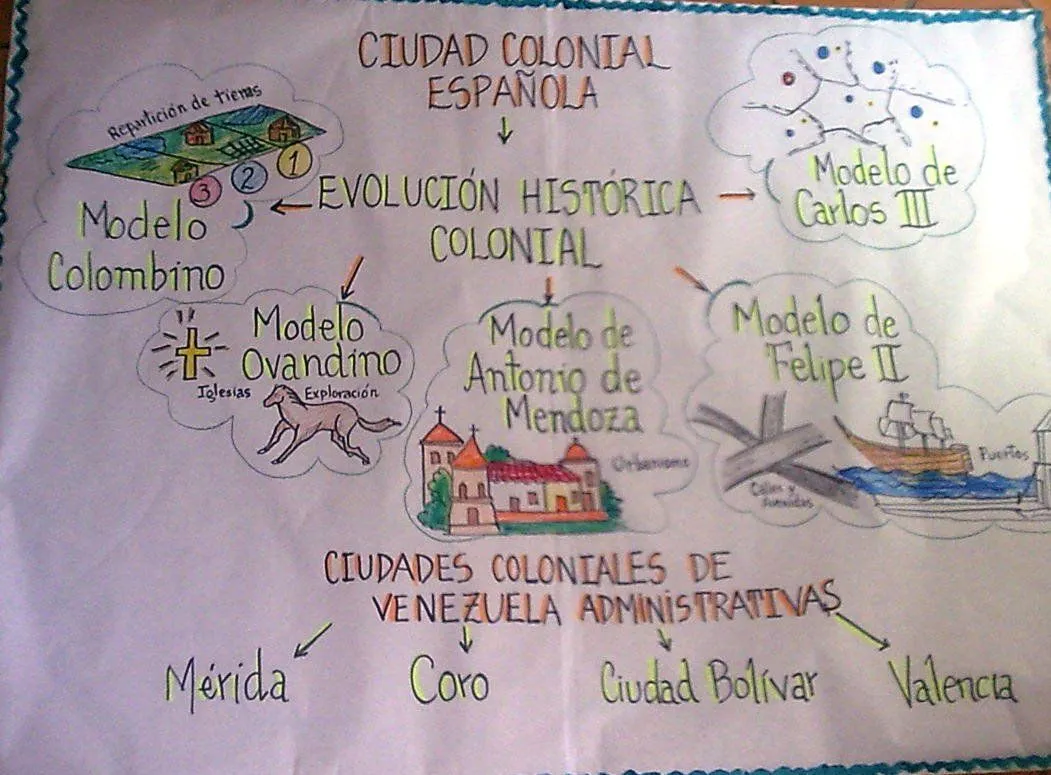 CIUDAD COLONIAL
ESPAÑOLA
Repartición de tierras
1
2
3
Modelo
Colombino
EVOLUCIÓN HISTÓRICA
COLONIAL
Modelo de
Carlos III
Modelo
Ovandino
Iglesias
Exploración
Modelo de
Antonio de
Mendoza
Urbanismo
Modelo de
Felipe II
Calles y
Avenidas
Puertos
CIUDADES COLONIALES DE
VENEZUELA ADMINISTRATIVAS
Mérida
Coro
Ciudad Bolívar
Valencia